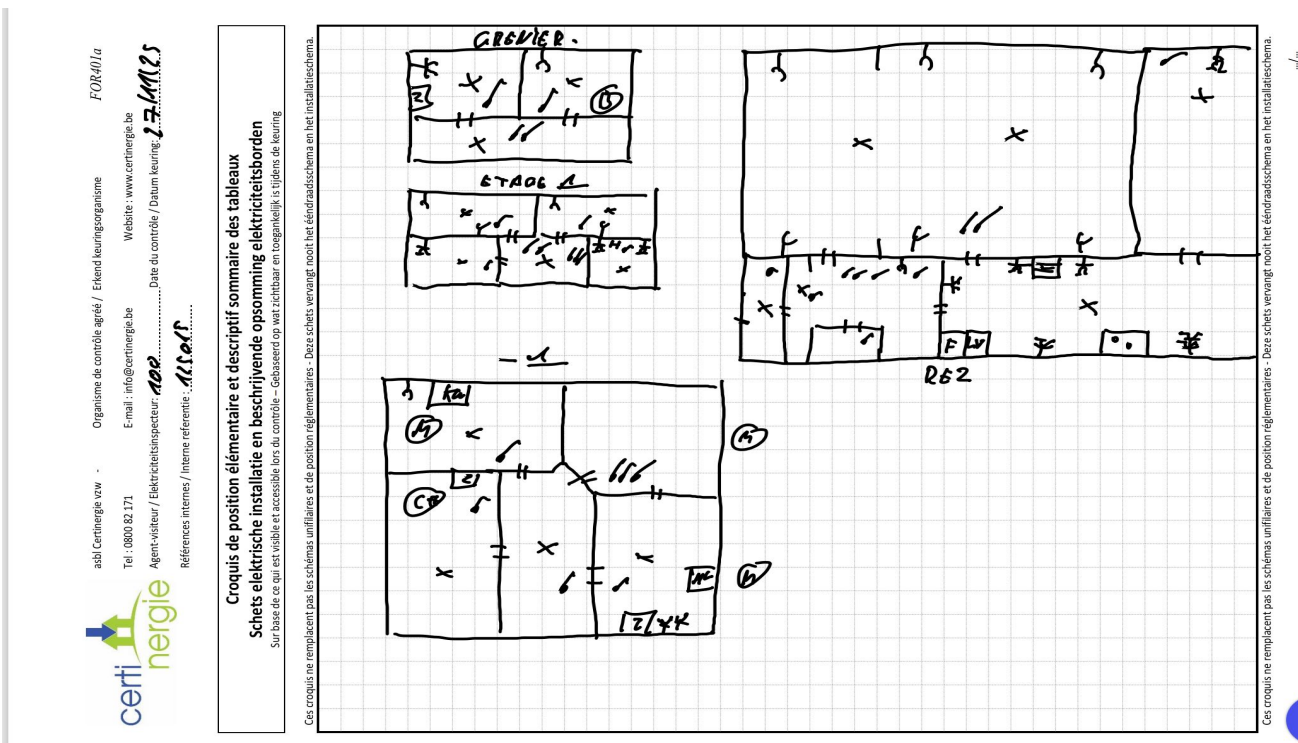 certi
nergie
asbl Certinergie vzw - Organisme de contrôle agréé / Erkend keuringsorganisme FOR401a
Tel : 0800 82 171 E-mail : info@certinergie.be Website : www.certinergie.be
Agent-visiteur / Elektriciteitsinspecteur: 100 Date du contrôle / Datum keuring: 27/11/25
Références internes / Interne referentie :
Croquis de position élémentaire et descriptif sommaire des tableaux
Schets elektrische installatie en beschrijvende opsomming elektriciteitsborden
Sur base de ce qui est visible et accessible lors du contrôle – Gebaseerd op wat zichtbaar en toegankelijk is tijdens de keuring
Ces croquis ne remplacent pas les schémas unifilaires et de position réglementaires - Deze schets vervangt nooit het ééndraadsschema en het installatieschema.
GRENIER.
ETAGE 1
-1
REZ
Ces croquis ne remplacent pas les schémas unifilaires et de position réglementaires - Deze schets vervangt nooit het ééndraadsschema en het installatieschema.
.../...